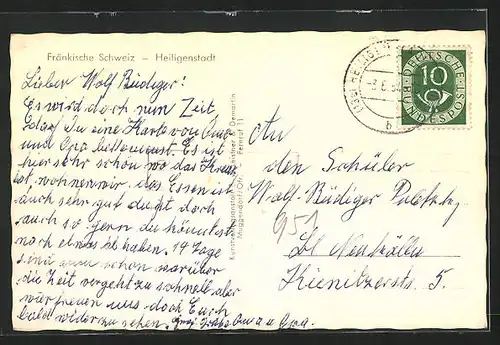 Fränkische Schweiz – Heiligenstadt
Lieber Wolf Rüdiger!
Es wird doch nun Zeit
daß Du eine Karte von Oma
und Opa bekommst. Es ist
hier sehr schön wo das Kreuz
ist, wohnen wir. das Essen ist
auch sehr gut du ißt doch
auch so gern du könntest
noch etwas ab haben. 14 Tage
sind nun schon vorüber
die Zeit vergeht zu schnell aber
wir freuen uns doch Euch
bald wieder zu sehen. Oma u. Opa.
Muggendorf/Ofr. Fernruf 11
DEUTSCHE
BUNDESPOST
10
An
den Schüler
Wolf-Rüdiger
951
Bl Neukölln
Kienitzerstr 5.